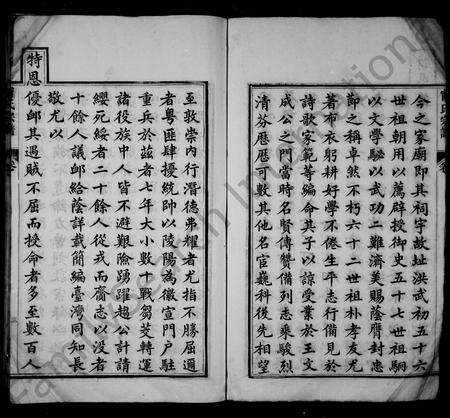 今之家廟即其祠字故址洪武初五十六
世祖朝用以薦辟授御史五十七世祖駉
以文學馺以武功二難濟美賜蔭膺封忠
節之稱卓然不朽六十二世祖朴孝友尤
著布衣躬耕好學不倦生平志行備見於
詩歌家範等編命其子以諒受業於王文
成公之門當時名賢傳贊備列志乘駿烈
清芬歷歷可數其他名宦巍科後先相望
至敦崇內行潛德弗耀者尤指不勝屈邇
者粵匪肆擾統帥以陵陽為徽宣門户駐
重兵於茲者七年大小數十戰芻茭轉運
諸役族中人皆不避艱險踴躍趨公計請
纓死綏者二十餘人從戎而齎志以沒者
十餘人議邺給蔭詳載簡編臺灣同知長
敬尤以
特恩優邺其遇賊不屈而授命者多至數百人
Family Search International